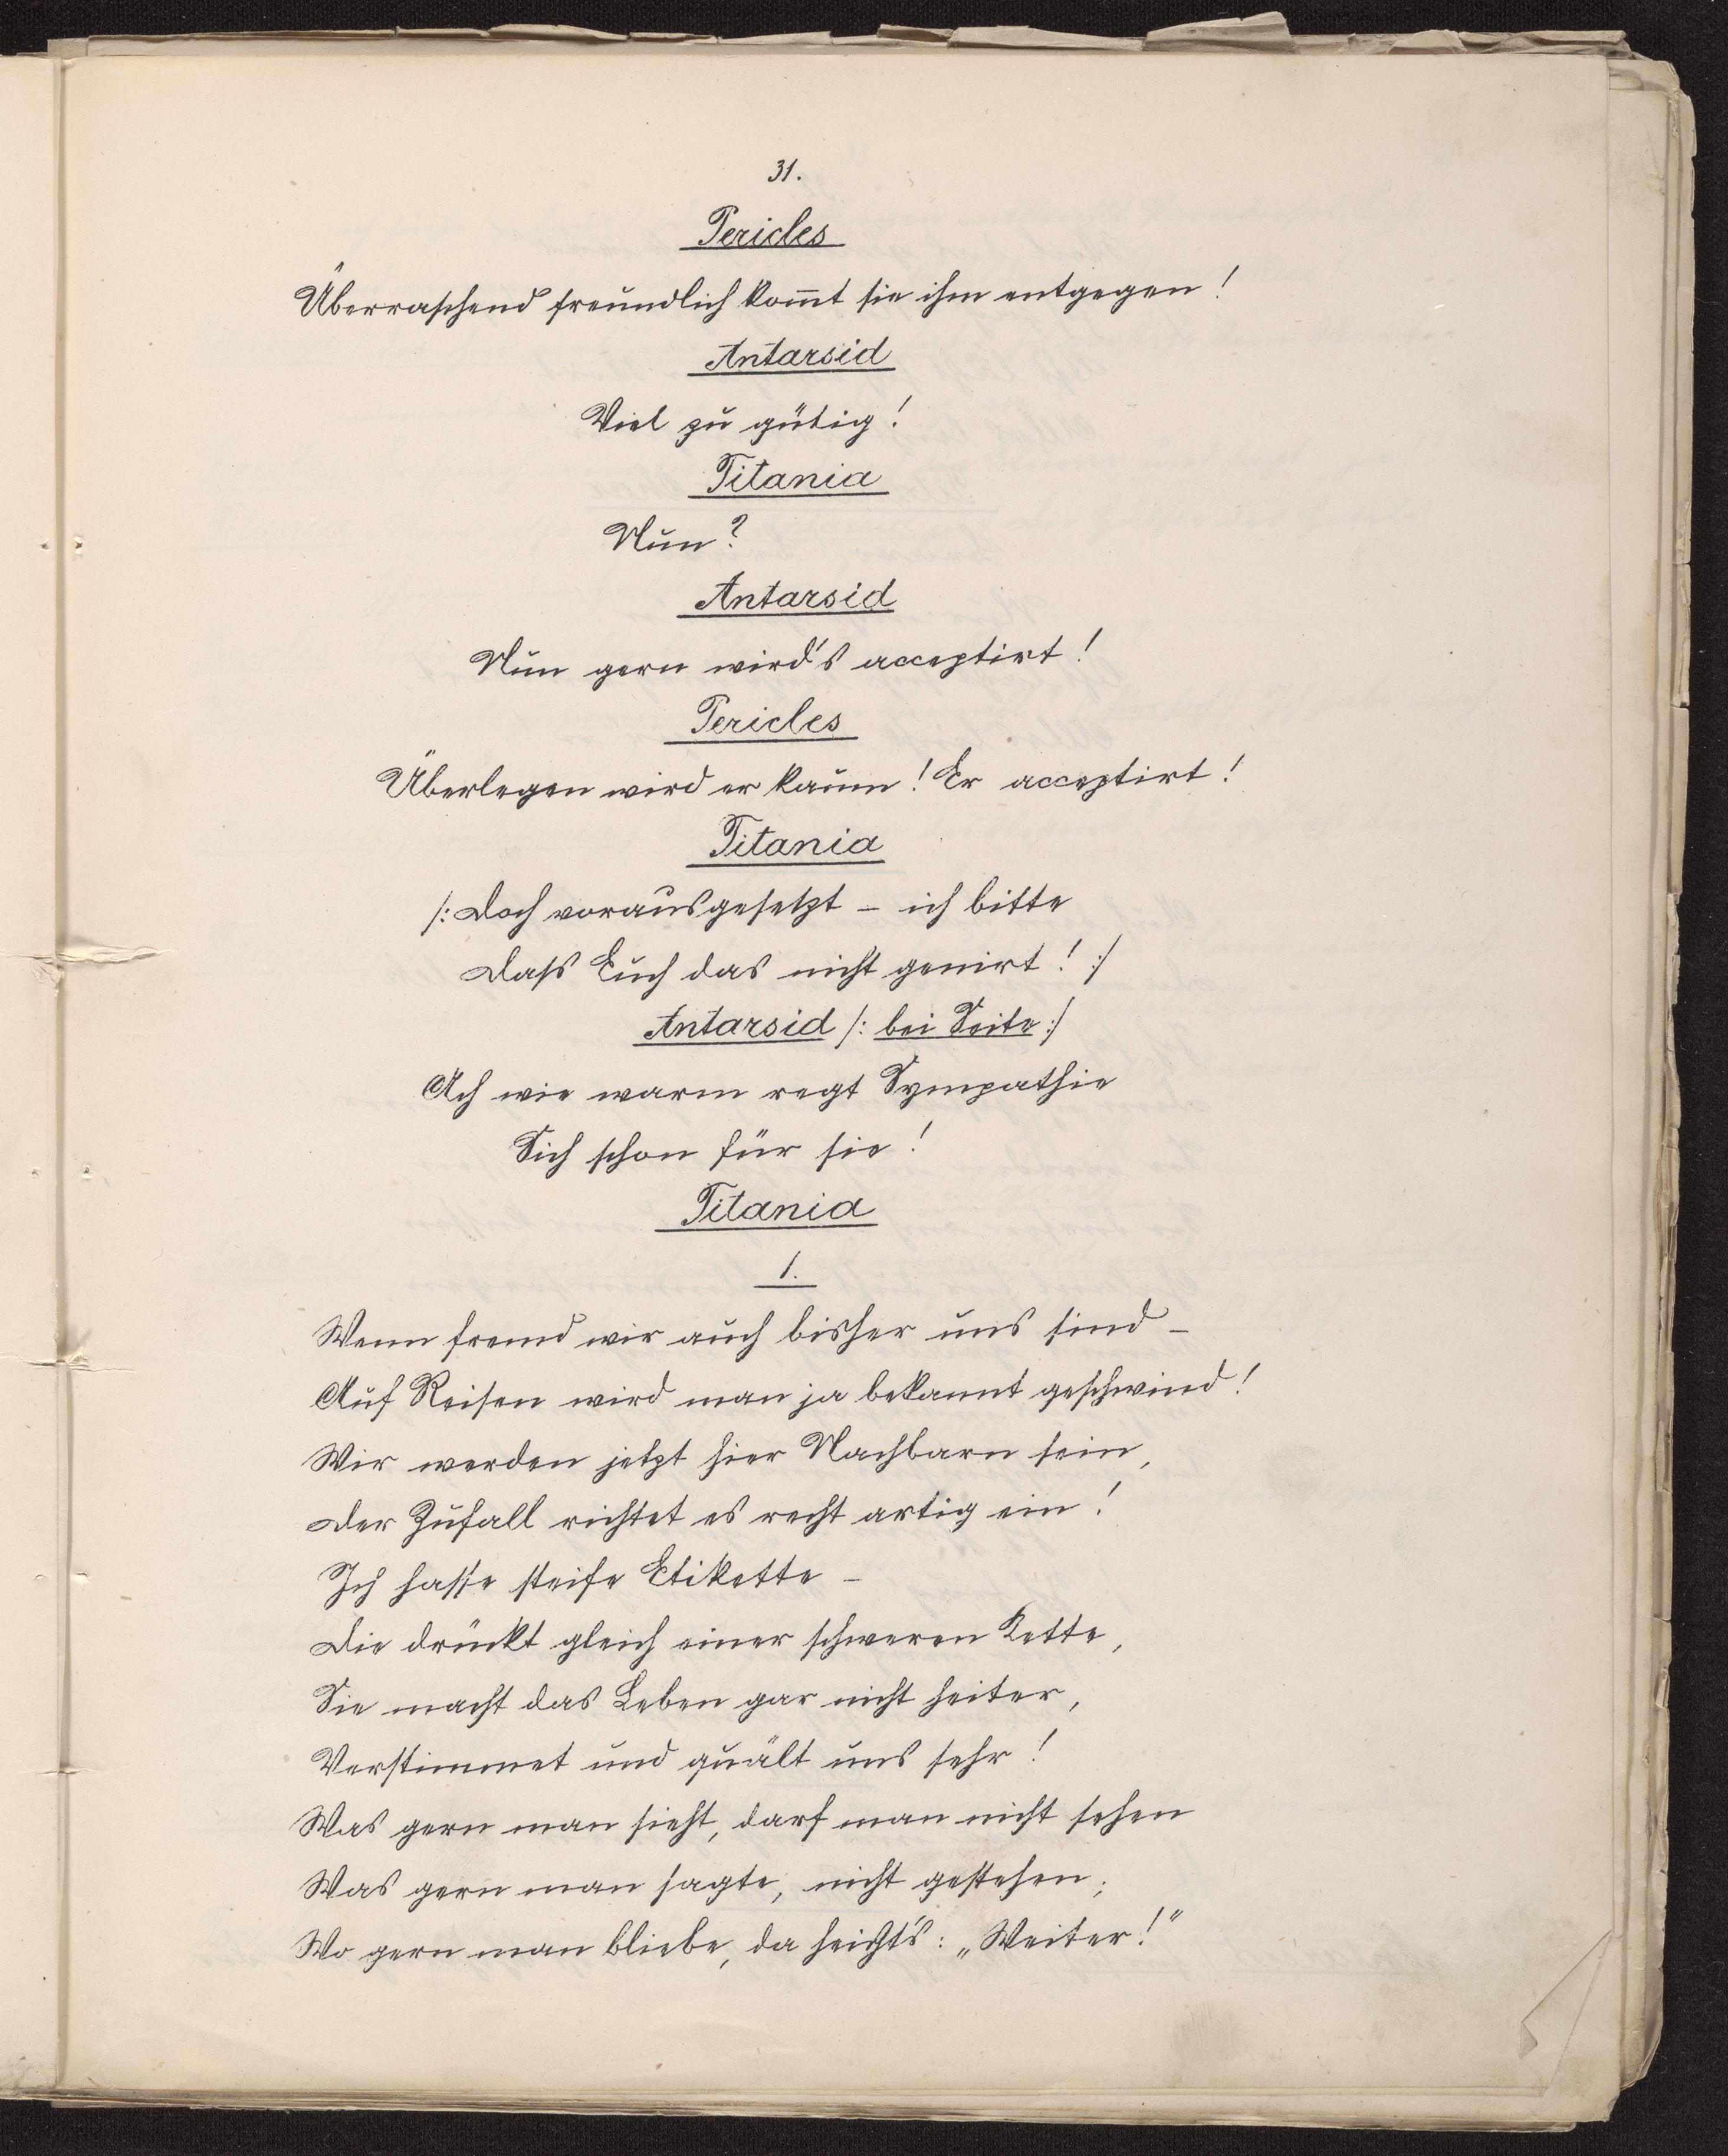 31.
Pericles
Überraschend freundlich kom̄t sie ihm entgegen!
Antarsid
Viel zu gütig!
Titania
Nun?
Antarsid
Nun gern wird's acceptirt!
Pericles
Überlegen wird er kaum! Er acceptirt!
Titania
/: Doch vorausgesetzt – ich bitte
Dass Euch das nicht genirt! :/
Antarsid /: bei Seite :/
Ach wie warm regt Sympathie
Sich schon für sie!
Titania
1.
Wenn fremd wir auch bisher uns sind –
Auf Reisen wird man ja bekannt geschwind!
Wir werden jetzt hier Nachbarn sein,
Der Zufall richtet es recht artig ein!
Ich hasse steife Etikette –
Die drückt gleich einer schweren Kette,
Sie macht das Leben gar nicht heiter,
Verstimmet und quält uns sehr!
Was gern man sieht, darf man nicht sehen
Was gern man sagte, nicht gestehen;
Wo gern man bliebe, da heißt's: „Weiter!"